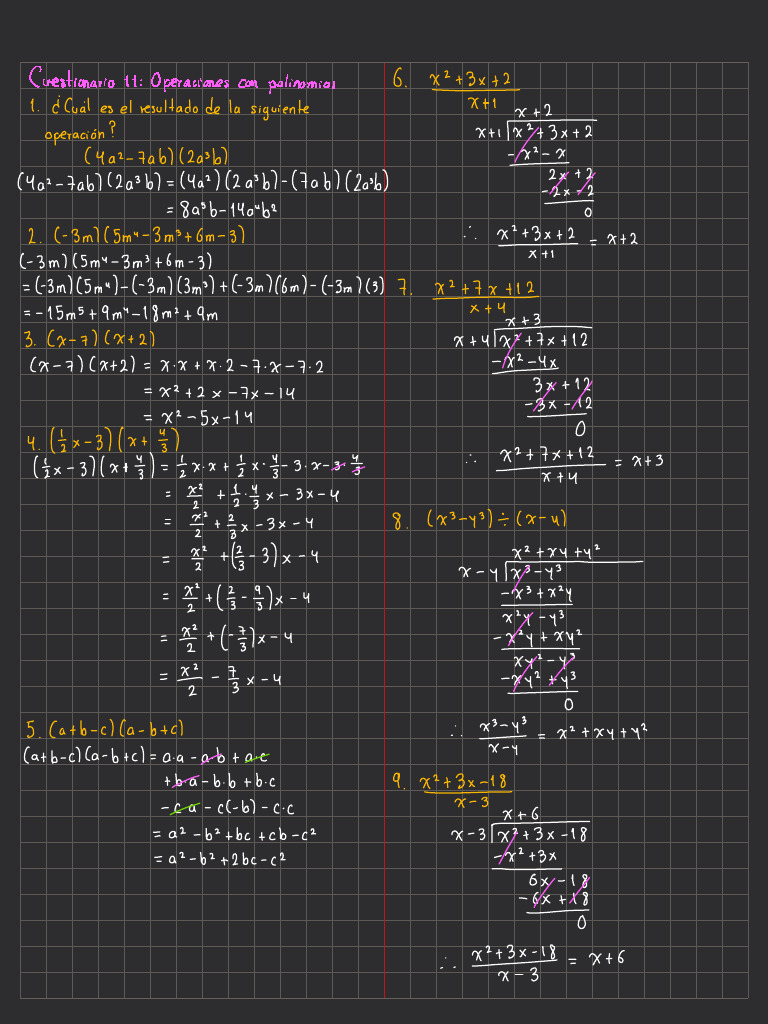 Cuestionario 11: Operaciones con polinomios
1. ¿Cuál es el resultado de la siguiente
operación?
(4a²-7ab)(2a³b)
(4a²-7ab)(2a³b) = (4a²)(2a³b)-(7ab)(2a³b)
= 8a⁵b-14a⁴b²
2. (-3m)(5m⁴-3m³+6m-3)
(-3m)(5m⁴-3m³+6m-3)
=(-3m)(5m⁴)-(-3m)(3m³)+(-3m)(6m)-(-3m)(3)
=-15m⁵+9m⁴-18m²+9m
3. (x-7)(x+2)
(x-7)(x+2) = x·x+x·2-7·x-7·2
= x²+2x-7x-14
= x²-5x-14
4. (1/2 x-3)(x+4/3)
(1/2 x-3)(x+4/3) = 1/2 x·x+1/2 x·4/3-3·x-3·4/3
= x²/2 + 1/2·4/3 x-3x-4
= x²/2 + 2/3 x-3x-4
= x²/2 +(2/3-3)x-4
= x²/2 +(2/3-9/3)x-4
= x²/2 +(-7/3)x-4
= x²/2 - 7/3 x-4
5. (a+b-c)(a-b+c)
(a+b-c)(a-b+c) = a·a-a·b+a·c
+b·a-b·b+b·c
-c·a-c(-b)-c·c
= a²-b²+bc+cb-c²
= a²-b²+2bc-c²
6. x²+3x+2
x+1
x+2
x+1 x²+3x+2
-x²-x
2x+2
-2x-2
0
∴ x²+3x+2 / x+1 = x+2
7. x²+7x+12
x+4
x+3
x+4 x²+7x+12
-x²-4x
3x+12
-3x-12
0
∴ x²+7x+12 / x+4 = x+3
8. (x³-y³)÷(x-y)
x²+xy+y²
x-y x³-y³
-x³+x²y
x²y-y³
-x²y+xy²
xy²-y³
-xy²+y³
0
∴ x³-y³ / x-y = x²+xy+y²
9. x²+3x-18
x-3
x+6
x-3 x²+3x-18
-x²+3x
6x-18
-6x+18
0
∴ x²+3x-18 / x-3 = x+6